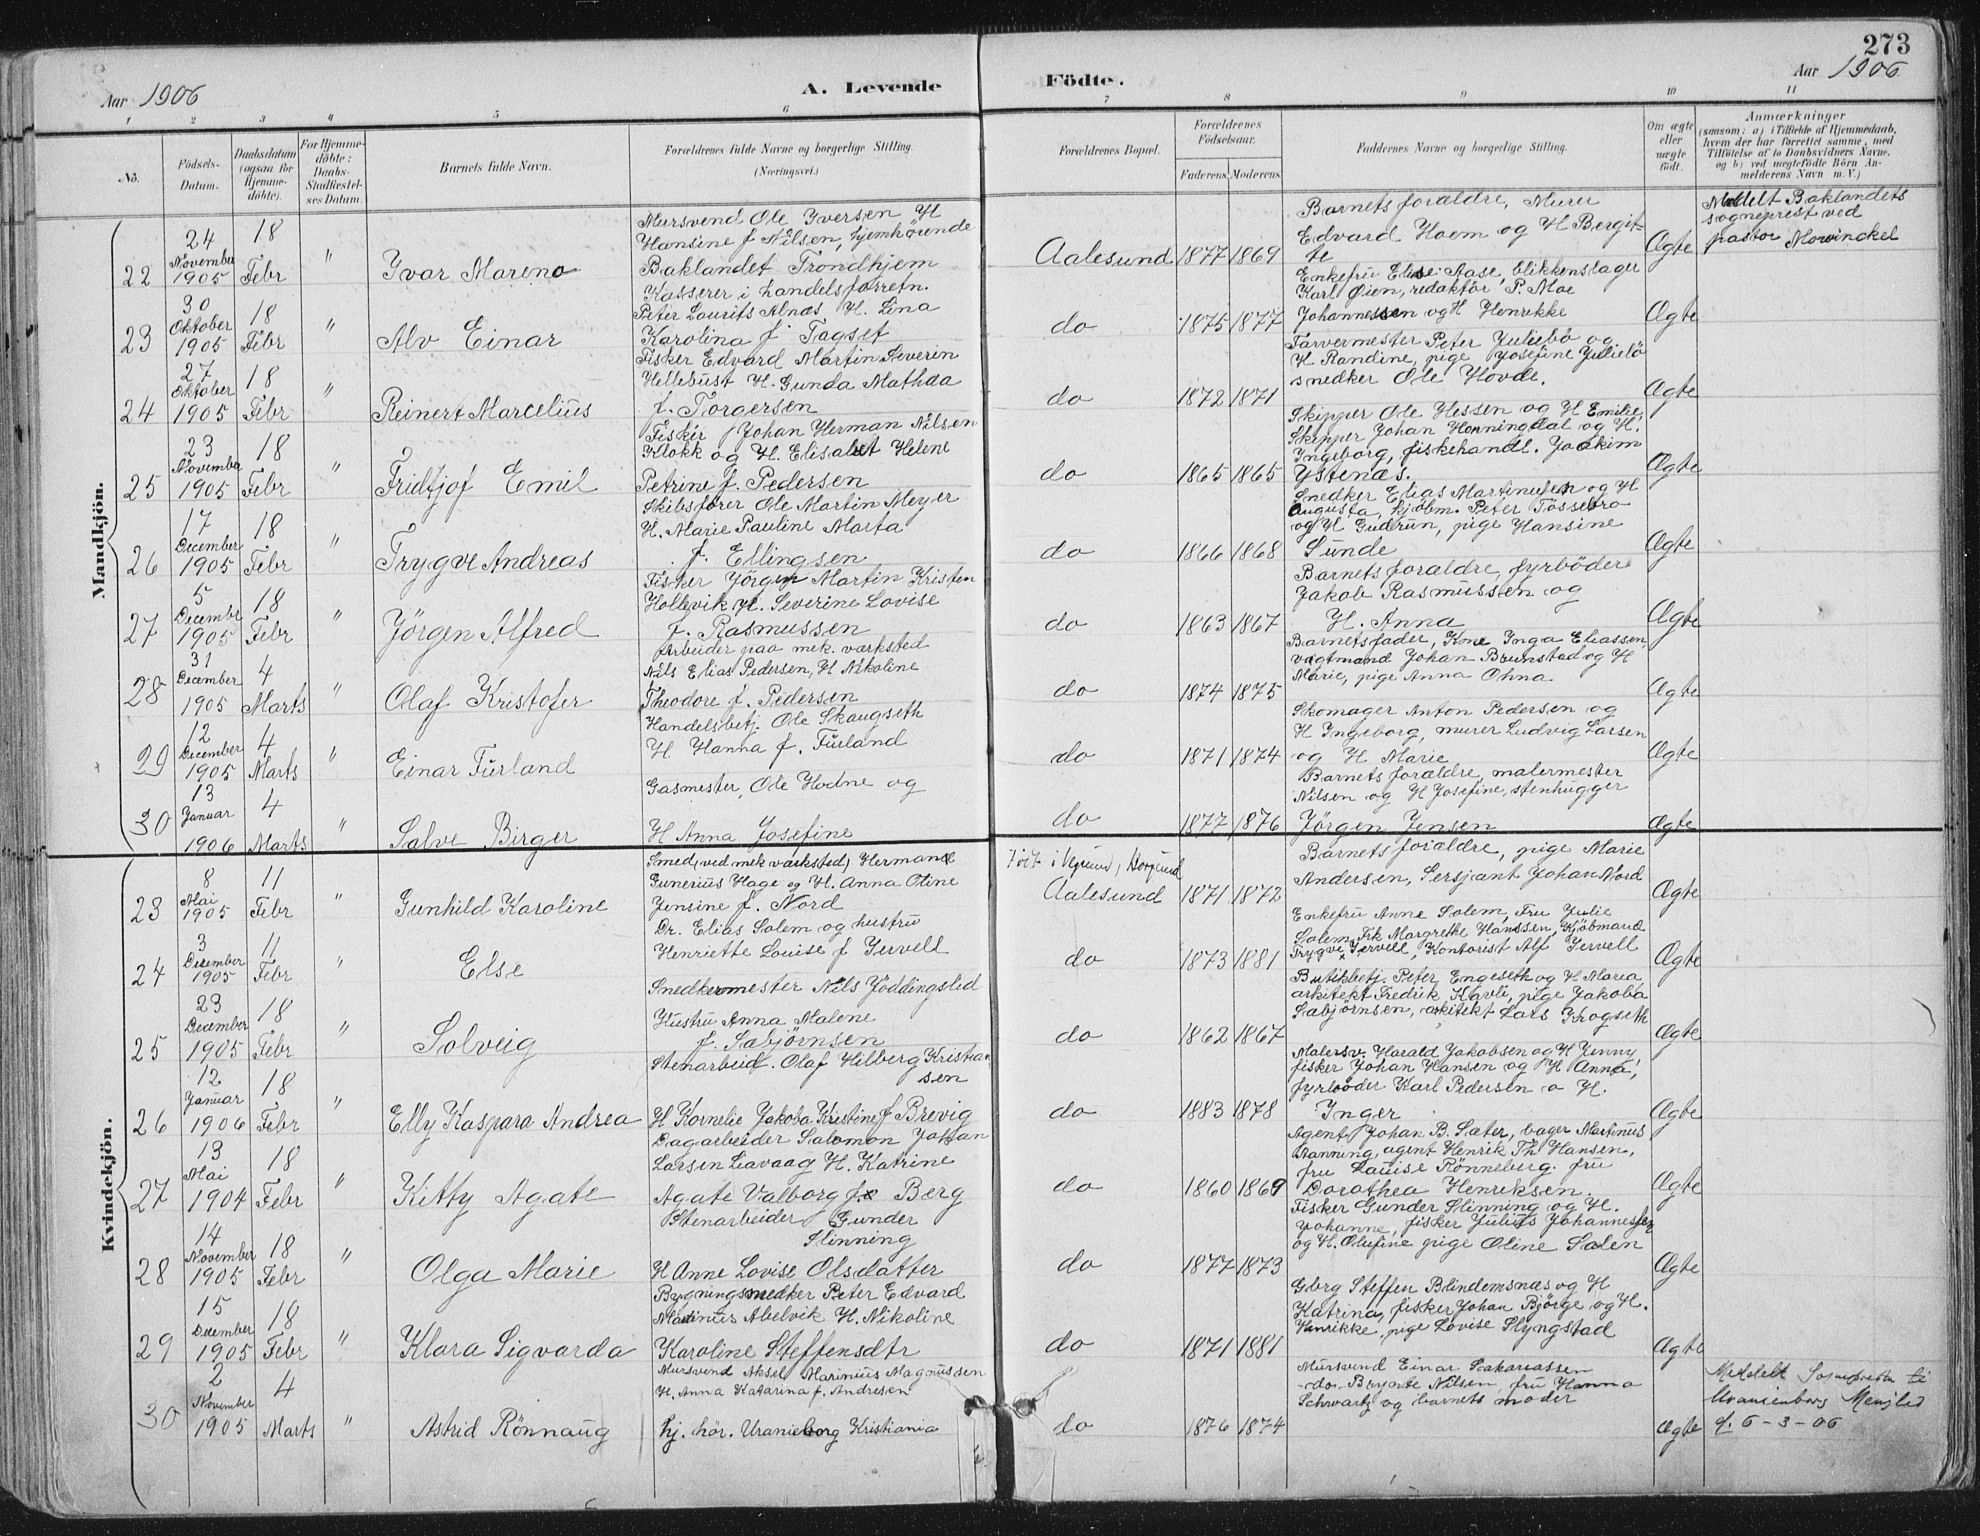 273
Aar 1906
A. Levende
Födte.
Aar 1906
1 2 3 4 5 6 7 8 9 10 11
No.
Födsels-Datum.
Daabsdatum (ogsaa for Hjemmedöbte).
For Hjemmedöbte: Daabs-Stadfæstelses Datum.
Barnets fulde Navn.
Forældrenes fulde Navne og borgerlige Stilling. (Næringsvei.)
Forældrenes Bopæl.
Forældrenes Födselsaar.
Faderens. Moderens.
Faddernes Navne og borgerlige Stilling.
Om ægte eller uægte födt.
Anmærkninger
(saasom: a) i Tilfælde af Hjemmedaab,
hvem der har forrettet samme, med
Tilföielse af to Daabsvidners Navne.
og b) ved uægtefödte Börn Anmelderens Navn m. V.)
Mandkjön.
22
24 November 1905
18 Febr
"
Yvar Mareno
Mursvend Ole Yversen H
Hansine f Nilsen, hjemhörende
Baklandet Trondhjem
Aalesund
1877 1869
Barnets forældre, Murer
Edvard Hoem og H Bergit-
te
Ægte
Meddelt Baklandets
sogneprest ved
pastor Mowinckel
23
30 Oktober 1905
18 Febr
"
Alv Einar
Kasserer i handelsforretn.
Peter Laurits Alnæs H. Lina
Karolina f. Tagset
do
1875 1877
Enkefru Elise Aase, blikkenslager
Karl Øien, redaktör P. Moe
Johannessen og H Henrikke
Ægte
24
27 Oktober 1905
18 Febr
"
Reinert Marcelius
Fisker Edvard Martin Severin
Hellebust H. Gunda Mathea
f. Torgersen
do
1872 1871
Farvermester Peter Juliebö og
H. Randine, pige Josefine Juliebö
snedker Ole Hovde.
Ægte
25
23 November 1905
18 Febr
"
Fridtjof Emil
Fisker Johan Herman Nilsen
Klokk og H. Elisabet Helene
Petrine f. Pedersen
do
1865 1865
Skipper Ole Hessen og H Emilie,
Skipper Johan Honningdal og H.
Ingeborg, fiskehandl. Joakim
Ystenæs.
Ægte
26
17 December 1905
18 Febr
"
Trygve Andreas
Skibsförer Ole Martin Meyer
H. Marie Pauline Marta
f. Ellingsen
do
1866 1868
Snedker Elias Martinusen og H
Augusta, kjöbm. Peter Fossebro
og H Gudrun, pige Hansine
Sunde
Ægte
27
5 December 1905
18 Febr
"
Jörgen Alfred
Fisker Jörgen Martin Kristen
Hollevik H. Severine Lovise
f. Rasmussen
do
1863 1867
Barnets forældre, fyrböder
Jakob Rasmussen og
H. Anna
Ægte
28
31 December 1905
4 Marts
"
Olaf Kristofer
Arbeider paa mek. værksted
Nils Elias Pedersen, H Nikoline
Theodore f. Pedersen
do
1874 1875
Barnets fader, Kone Inga Eliassen,
vagtmand Johan Brunstad og H
Marie, pige Anna Ohna
Ægte
29
12 December 1905
4 Marts
"
Einar Furland
Handelsbetj. Ole Skaugseth
H. Hanna f. Furland
do
1871 1874
Skomager Anton Pedersen og
H Ingeborg, murer Ludvig Larsen
og H Marie
Ægte
30
13 Januar 1906
4 Marts
"
Salve Birger
Gasmester, Ole Hodne og
H Anna Josefine
do
1877 1876
Barnets forældre, malermester
Nilsen og H Josefine, stenhugger
Jörgen Jensen
Ægte
Kvindekjön.
23
8 Mai 1905
11 Febr
"
Gunhild Karoline
Smed (ved mek værksted) Herman
Gunerius Hage og H. Anna Oline
Jensine f. Nord
Födt i Vegsund, Borgund
Aalesund
1871 1872
Barnets forældre, pige Marie
Andersen, Sersjant Johan Nord
Ægte
24
3 December 1905
11 Febr
"
Else
Dr. Elias Solem og hustru
Henriette Louise f Jervell
do
1873 1881
Enkefru Anne Solem, Fru Julie
Solem, Frk Margrethe Hanssen, Kjöbmand
Trygve Jervell, Kontorist Alf Jervell
Ægte
25
23 December 1905
18 Febr
"
Solveig
Snedkermester Nils Jöddingslid
Hustru Anna Malene
f. Sæbjörnsen
do
1862 1867
Butikbetj. Peter Engeseth og H Maria,
arkitekt Fredrik Kavli, pige Jakoba
Sæbjörnsen, arkitekt Lars Krogseth
Ægte
26
12 Januar 1906
18 Febr
"
Elly Kaspara Andrea
Stenarbeid. Olaf Hilberg Kristian
sen
H Kornelie Jakoba Kristine f Brevig
do
1883 1878
Malersv. Harald Jakobsen og H Jenny
fisker Johan Hansen og H Anna,
fyrböder Karl Pedersen o H.
Inger
Ægte
27
13 Mai 1904
18 Febr
"
Kitty Agate
Dagarbeider Salomon Johan
Larsen Leavaag H. Katrine
Agate Valborg f. Berg
do
1860 1869
Agent Johan B. Sæter, bager Martinus
Stanning, agent Henrik Th Hansen,
fru Louise Rönneberg. fru
Dorathea Henriksen.
Ægte
28
14 November 1905
18 Febr
"
Olga Marie
Stenarbeider Gunder
Slinning
H Anne Lovise Olsdatter
do
1877 1873
Fisker Gunder Slinning og H.
Johanne, fisker Julius Johannessen
og H. Olufine pige Oline Solen
Ægte
29
15 December 1905
18 Febr
"
Klara Sigvarda
Bygningsnedker Peter Edvard
Martinus Abelvik H. Nikoline
Karoline Steffensdtr
do
1871 1881
Gbrg Steffen Blindemsnæs og H
Katrina, fisker Johan Bjørge og H.
Henrikke, pige Lovise Slyngstad
Ægte
30
2 November 1905
4 Marts
"
Astrid Rönnaug
Mursvend Aksel Marinius Magnussen
H. Anna Katarina f. Andresen
hj. hör. Uranieborg Kristiania
do
1876 1874
Mursvend Einar Sakariassen
-do- Nilsen, fru Hanna
Schwartz og barnets moder
Ægte
Meddelt Sogneprest til
Uranienborg Menighed
d. 6-3-06